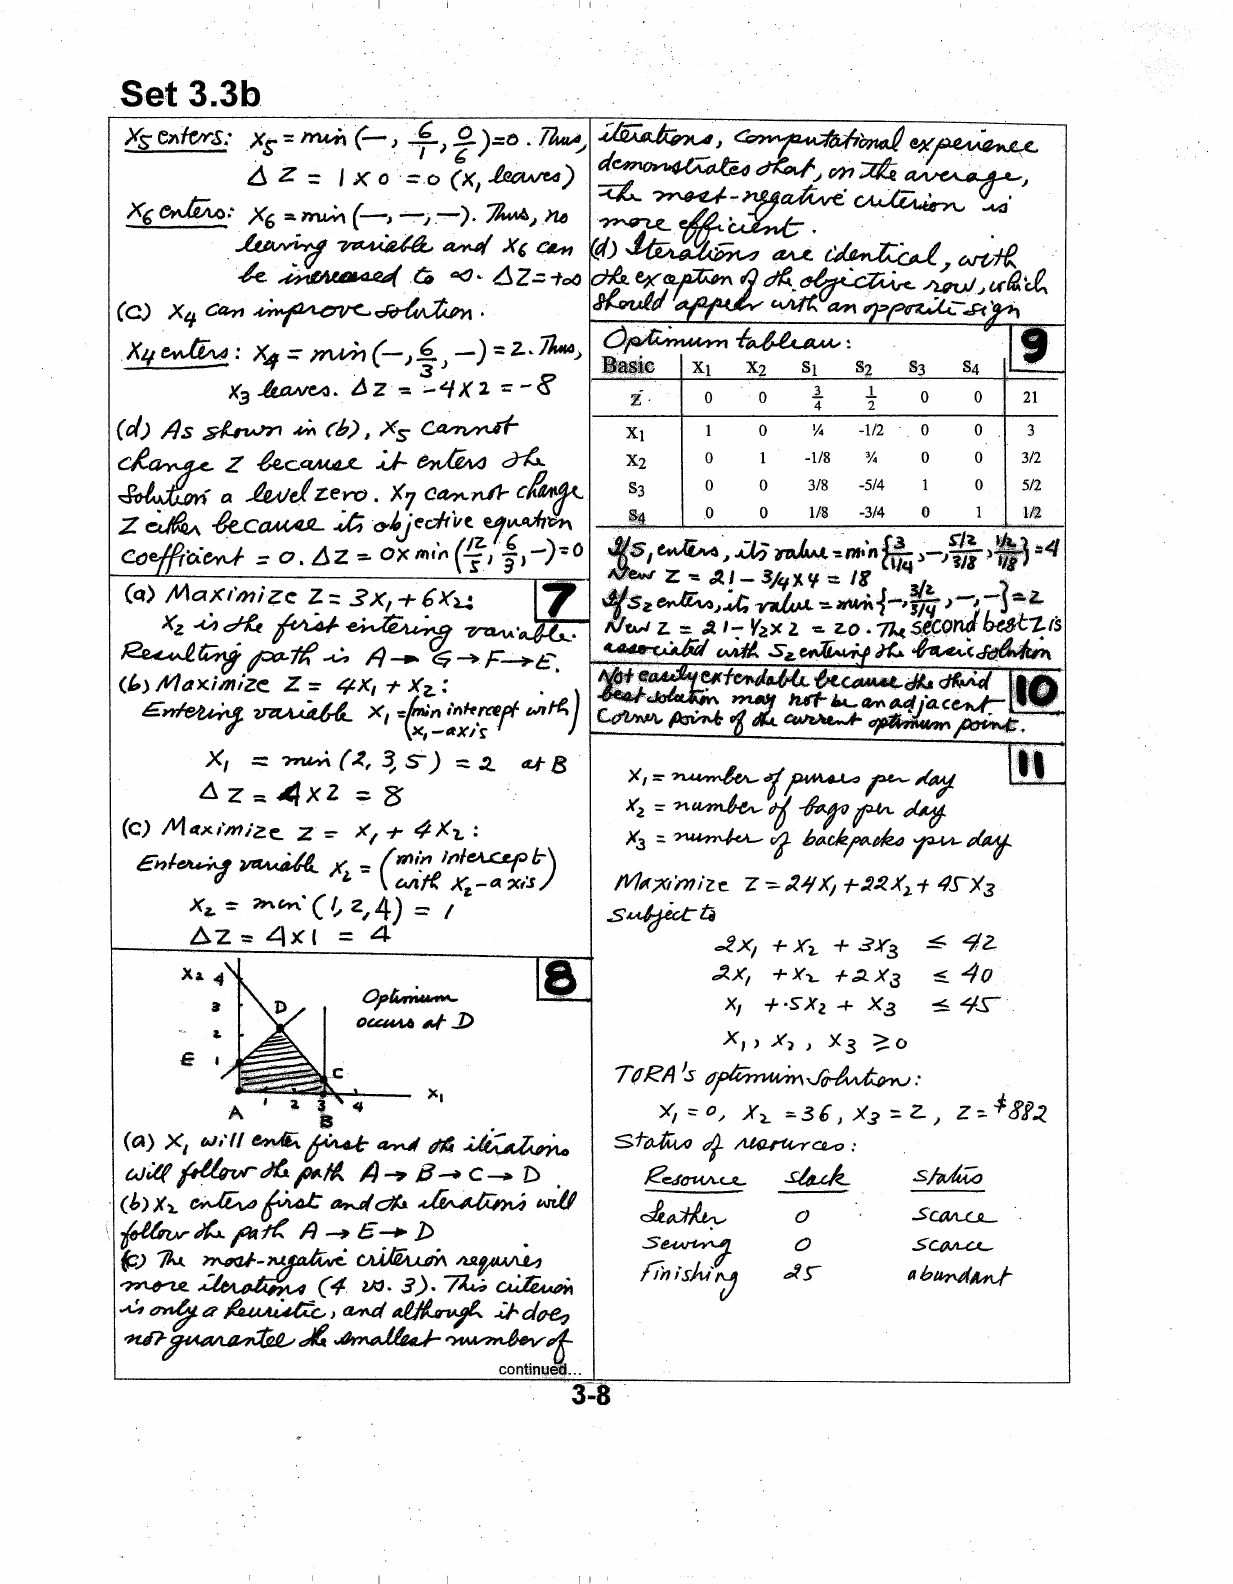 Set 3.3b
X5 enters: X5 = min (—, 6/1, 0/6)=0. Thus,
Δ Z = 1 X 0 = 0 (X1 leaves)
X6 enters: X6 = min (—, —, —). Thus, no
leaving variable and X6 can
be increased to ∞. ΔZ=+∞
(c) X4 can improve solution.
X4 enters: X4 = min (—, 6/3, —) = 2. Thus,
X3 leaves. ΔZ = -4 X 2 = -8
(d) As shown in (b), X5 cannot
change Z because it enters the
solution a level zero. X7 cannot change
Z either because its objective equation
coefficient = 0. ΔZ = 0X min (12/5, 6/3, —)=0
7
(a) Maximize Z = 3X1 + 6X2:
X2 is the first entering variable.
Resulting path is A → G → F → E.
(b) Maximize Z = 4X1 + X2:
Entering variable X1 = (min intercept with
x1-axis)
X1 = min (2, 3, 5) = 2 at B
Δ Z = 4 X 2 = 8
(c) Maximize Z = X1 + 4X2:
Entering variable X2 = (min intercept
with X2-axis)
X2 = min (1, 2, 4) = 1
ΔZ = 4 X 1 = 4
8
X2 4
3 D
2
E 1
C
A 1 2 3 4 X1
B
Optimum
occurs at D
(a) X1 will enter first and the iterations
will follow the path A → B → C → D
(b) X2 enters first and the iterations will
follow the path A → E → D
(c) The most-negative criterion requires
more iterations (4 vs. 3). This criterion
is only a heuristic, and although it does
not guarantee the smallest number of
continued...
iterations, computational experience
demonstrates that, on the average,
the most-negative criterion is
more efficient.
(d) Iterations are identical, with
the exception of the objective row, which
should appear with an opposite sign
9
Optimum tableau:
Basic X1 X2 S1 S2 S3 S4
Z 0 0 3/4 1/2 0 0 21
X1 1 0 ¼ -1/2 0 0 3
X2 0 1 -1/8 ¾ 0 0 3/2
S3 0 0 3/8 -5/4 1 0 5/2
S4 0 0 1/8 -3/4 0 1 1/2
If S1 enters, its value = min {3/(1/4), —, (5/2)/(3/8), (1/2)/(1/8)} = 4
New Z = 21 - 3/4 X 4 = 18
If S2 enters, its value = min {—, (3/2)/(3/4), —, —} = 2
New Z = 21 - ½ X 2 = 20. The second best Z is
associated with S2 entering the basic solution
10
Not easily extendable because the third
best solution may not be an adjacent
corner point of the current optimum point.
11
X1 = number of purses per day
X2 = number of bags per day
X3 = number of backpacks per day
Maximize Z = 24X1 + 22X2 + 45X3
Subject to
2X1 + X2 + 3X3 ≤ 42
2X1 + X2 + 2X3 ≤ 40
X1 + .5X2 + X3 ≤ 45
X1, X2, X3 ≥ 0
TORA's optimum solution:
X1 = 0, X2 = 36, X3 = 2, Z = $882
Status of resources:
Resource slack status
Leather 0 scarce
Sewing 0 scarce
Finishing 25 abundant
3-8